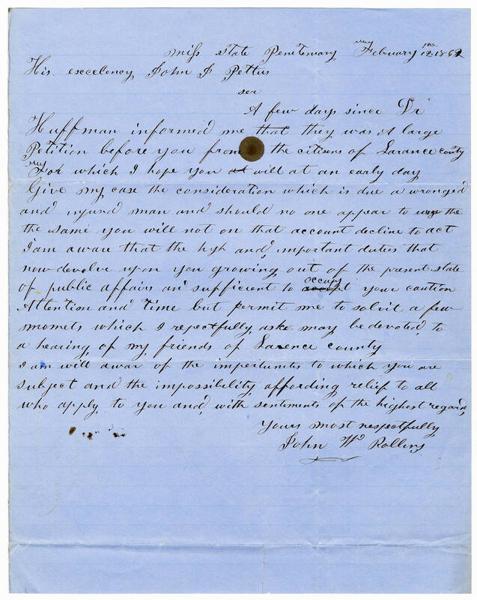 miss state Penetenary February 12th 1862
His excelency John J Pettus
ser
A few days since Dr
Huffman informed me that they was A large
Petition before you from the citiens of Larance county
For which I hope you will at an early day
Give my case the consideration which is due a wronged
and injurd man and should no one appear to urge the
the same you will not on that account decline to act
I am aware that the high and important duties that
now devolve upon you growing out of the present state
of public affairs ar sufficient to occupy your entire
Attention and time but permit me to solicit a few
momets which I respectfully ask may be devoted to
a hearing of my friends of Larence county
I am will awar of the impertunites to which you are
subject and the impossibility affording relief to all
who apply to you and with sentiments of the highest regard,
Yours most respectfully
John W Rollins